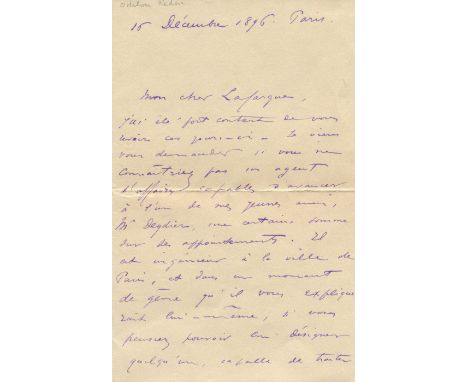 Odilon Redon
15 Décembre 1896. Paris.
Mon cher Lafargue,
j'ai été fort content de vous
revoir ces jours-ci - Je viens
vous demander si vous ne
connaîtriez pas un agent
d'affaires capable d'avancer
à l'un de mes jeunes amis,
Mr Deydier, une certaine somme
sur ses appointements. Il
est ingénieur à la ville de
Paris, et dans un moment
de gêne qu'il vous explique
rait lui-même, si vous
pensiez pouvoir lui désigner
quelqu'un, capable de traiter